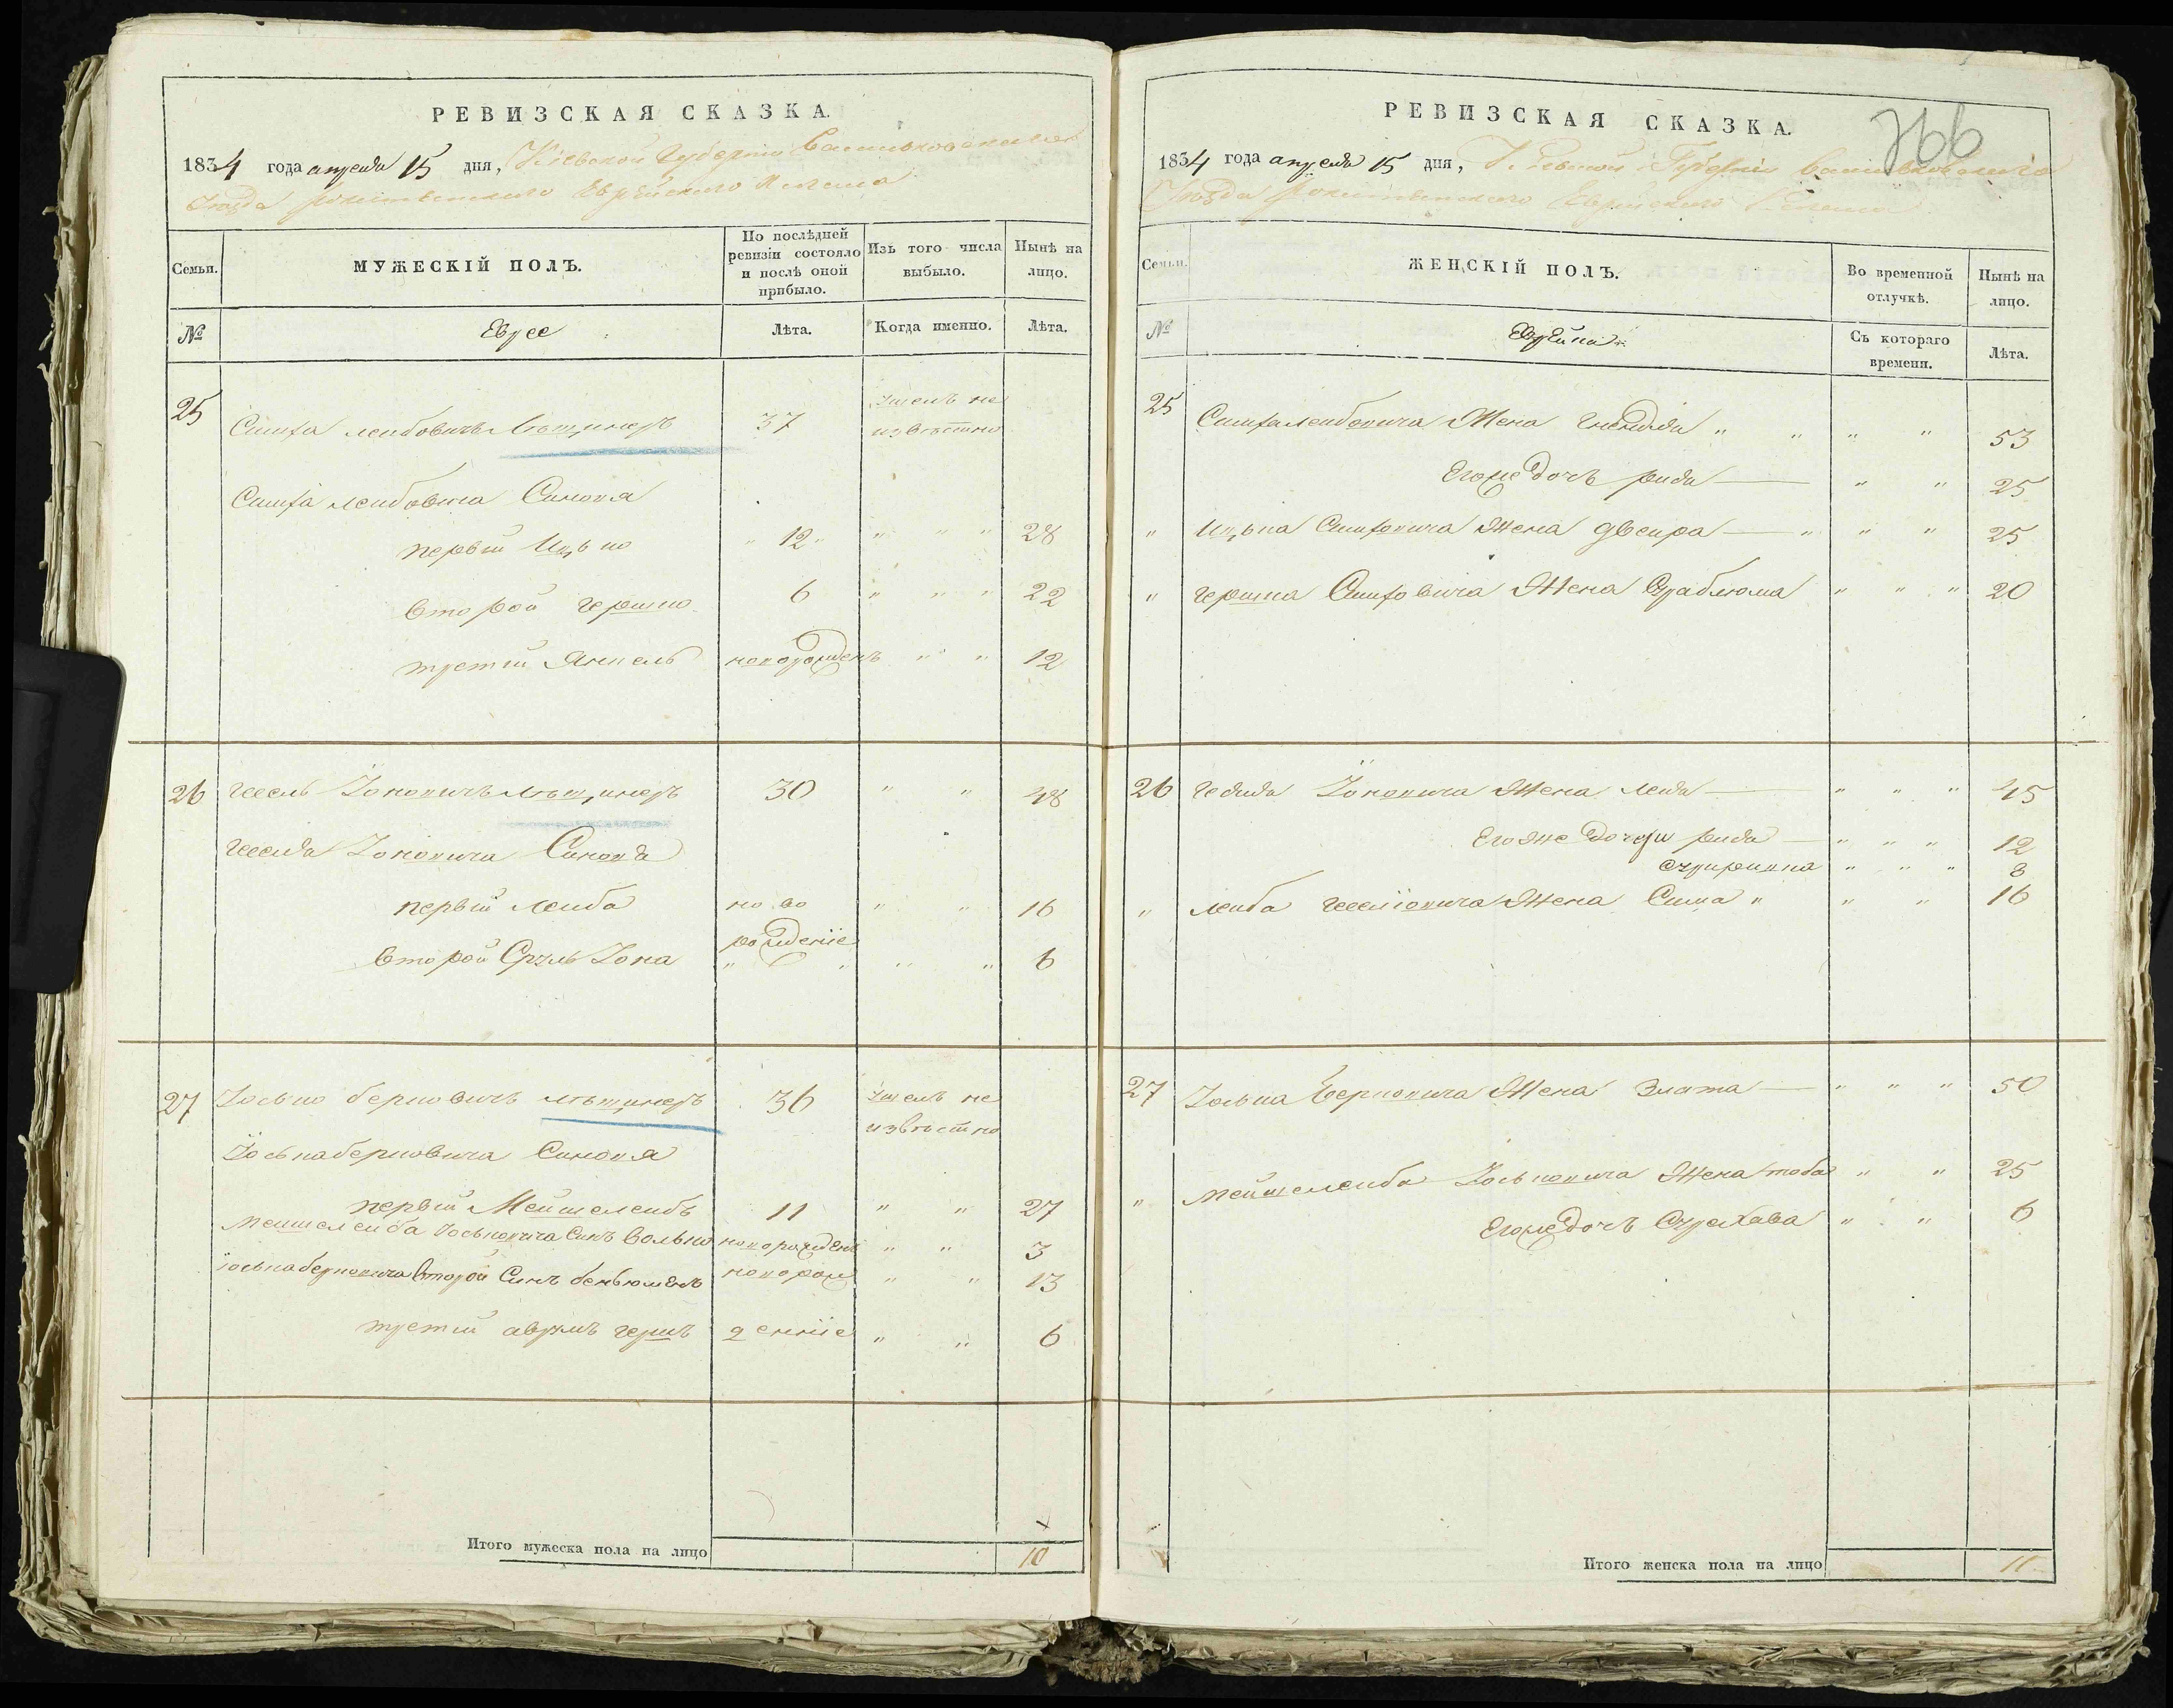 РЕВИЗСКАЯ СКАЗКА.
1834 года апреля 15 дня, Кіевской Губерніи Васильковскаго
Уѣзда Рокитянского Еврейского
Семьи. МУЖЕСКІЙ ПОЛЪ. По послѣдней ревизіи состояло и послѣ оной прибыло. Изъ того числа выбыло. Нынѣ на лицо.
№ Еврее Лѣта. Когда именно. Лѣта.
25 Симха Лейбовичъ 37 неизвѣстно
Симха Лейбовича Синовя
первій Ицько " 12 " " " " 28
второй Гершко 6 " " " 22
третій Янкель новорожденъ " " 12
26 Гесель Іоновичъ 30 " " 48
Геселя Іоновича Синовя
первій Лейба ново " " 16
рожденіе
второй Срулъ Іона " " " " 6
27 Іосько Берковичъ 36 неизвѣстно
Іоська Берковича Синовя
первій Мейшелейбъ 11 " " 27
Мейшелейба Іоськовича СинъВолько новорожденъ " " 3
Іоська Берковича второй Синъ Бенъюменъ новорож " " 13
третій Аврумъ Гершъ денніе " " 6
Итого мужеска пола на лицо 10
РЕВИЗСКАЯ СКАЗКА.
366
1834 года апреля 15 дня, Кіевской Губерніи Васильковского
Уѣзда Рокитянского Еврейского
Семьи. ЖЕНСКІЙ ПОЛЪ. Во временной отлучкѣ. Нынѣ на лицо.
№ Съ котораго времени. Лѣта.
25 Симха Лейбовича Жена Гнендля " " " " 53
Егоже дочъ Рида " " 25
" Ицька Симховича Жена Двейра " " " 25
" Гершка Симховича Жена Фраблюма " " " 20
26 Геселя Іоновича Жена Лея " " " 45
Егоже дочери Рида " " " 12
" " " 8
" Лейба Геселіовича Жена Сима " " " 16
27 Іоська Берковича Жена Злата " " " 50
" Мейшелейба Іоськовича Жена Тоба " " 25
Егоже дочъ " " 6
Итого женска пола на лицо 11